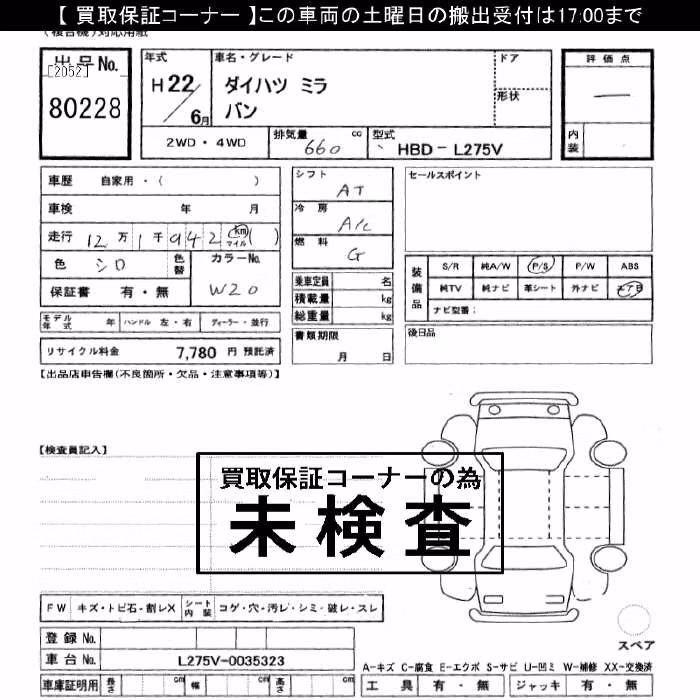 【 買取保証コーナー 】この車両の土曜日の搬出受付は17:00まで
(複合機)対応用紙
出品No.
[2052]
80228
年式
H22/6月
車名・グレード
ダイハツ ミラ
バン
ドア
形状
評価点
―
内装
2WD・4WD
排気量 660 cc
型式 HBD-L275V
車歴 自家用・( )
車検 年 月
走行 12万1千942 km マイル ( )
色 シロ
色替
カラーNo.
W20
保証書 有・無
シフト
AT
冷房
A/C
燃料
G
乗車定員 名
積載量 kg
総重量 kg
書類期限
月 日
セールスポイント
装備品
S/R 純A/W P/S P/W ABS
純TV 純ナビ 革シート 外ナビ エアB
ナビ型番:
後日品
モデル年式 年 ハンドル 左・右 ディーラー・並行
リサイクル料金 7,780 円 預託済
【出品店申告欄(不良箇所・欠品・注意事項等)】
【検査員記入】
買取保証コーナーの為
未検査
FW キズ・トビ石・割レX シート内装 コゲ・穴・汚レ・シミ・破レ・スレ
登録No.
車台No. L275V-0035323
車庫証明用 長さ cm 幅 cm 高さ cm
スペア
A-キズ C-腐食 E-エクボ S-サビ U-凹ミ W-補修 XX-交換済
工具 有・無 ジャッキ 有・無